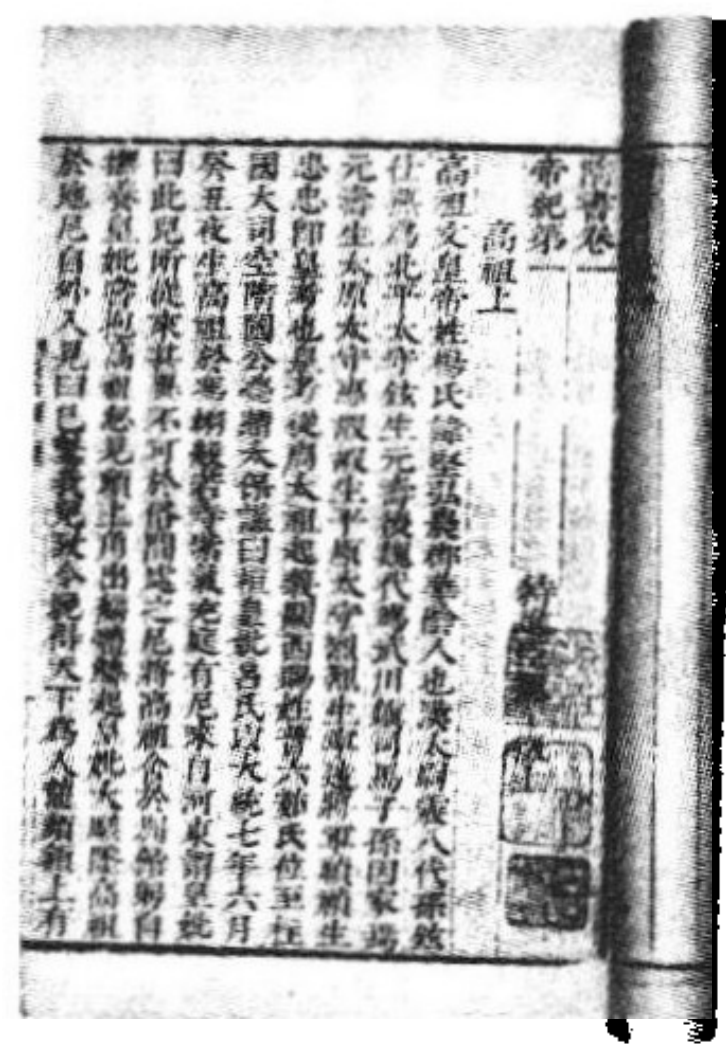 隋書卷一
帝紀第一 特進臣魏
高祖上
高祖文皇帝姓楊氏諱堅弘農郡華陰人也漢太尉震八代孫鉉
仕燕爲北平太守鉉生元壽後魏代爲武川鎮司馬子孫因家焉
元壽生太原太守惠嘏嘏生平原太守烈烈生寧遠將軍禎禎生
忠忠即皇考也皇考從周太祖起義關西賜姓普六茹氏位至柱
國大司空隋國公薨贈太保謚曰桓皇妣呂氏以大統七年六月
癸丑夜生高祖於馮翊般若寺紫氣充庭有尼來自河東謂皇妣
曰此兒所從來甚異不可於俗間處之尼將高祖舍於別館躬自
撫養皇妣嘗抱高祖忽見頭上角出徧體鱗起皇妣大駭墜高祖
於地尼自外入見曰已驚我兒致令晚得天下爲人龍頷額上有